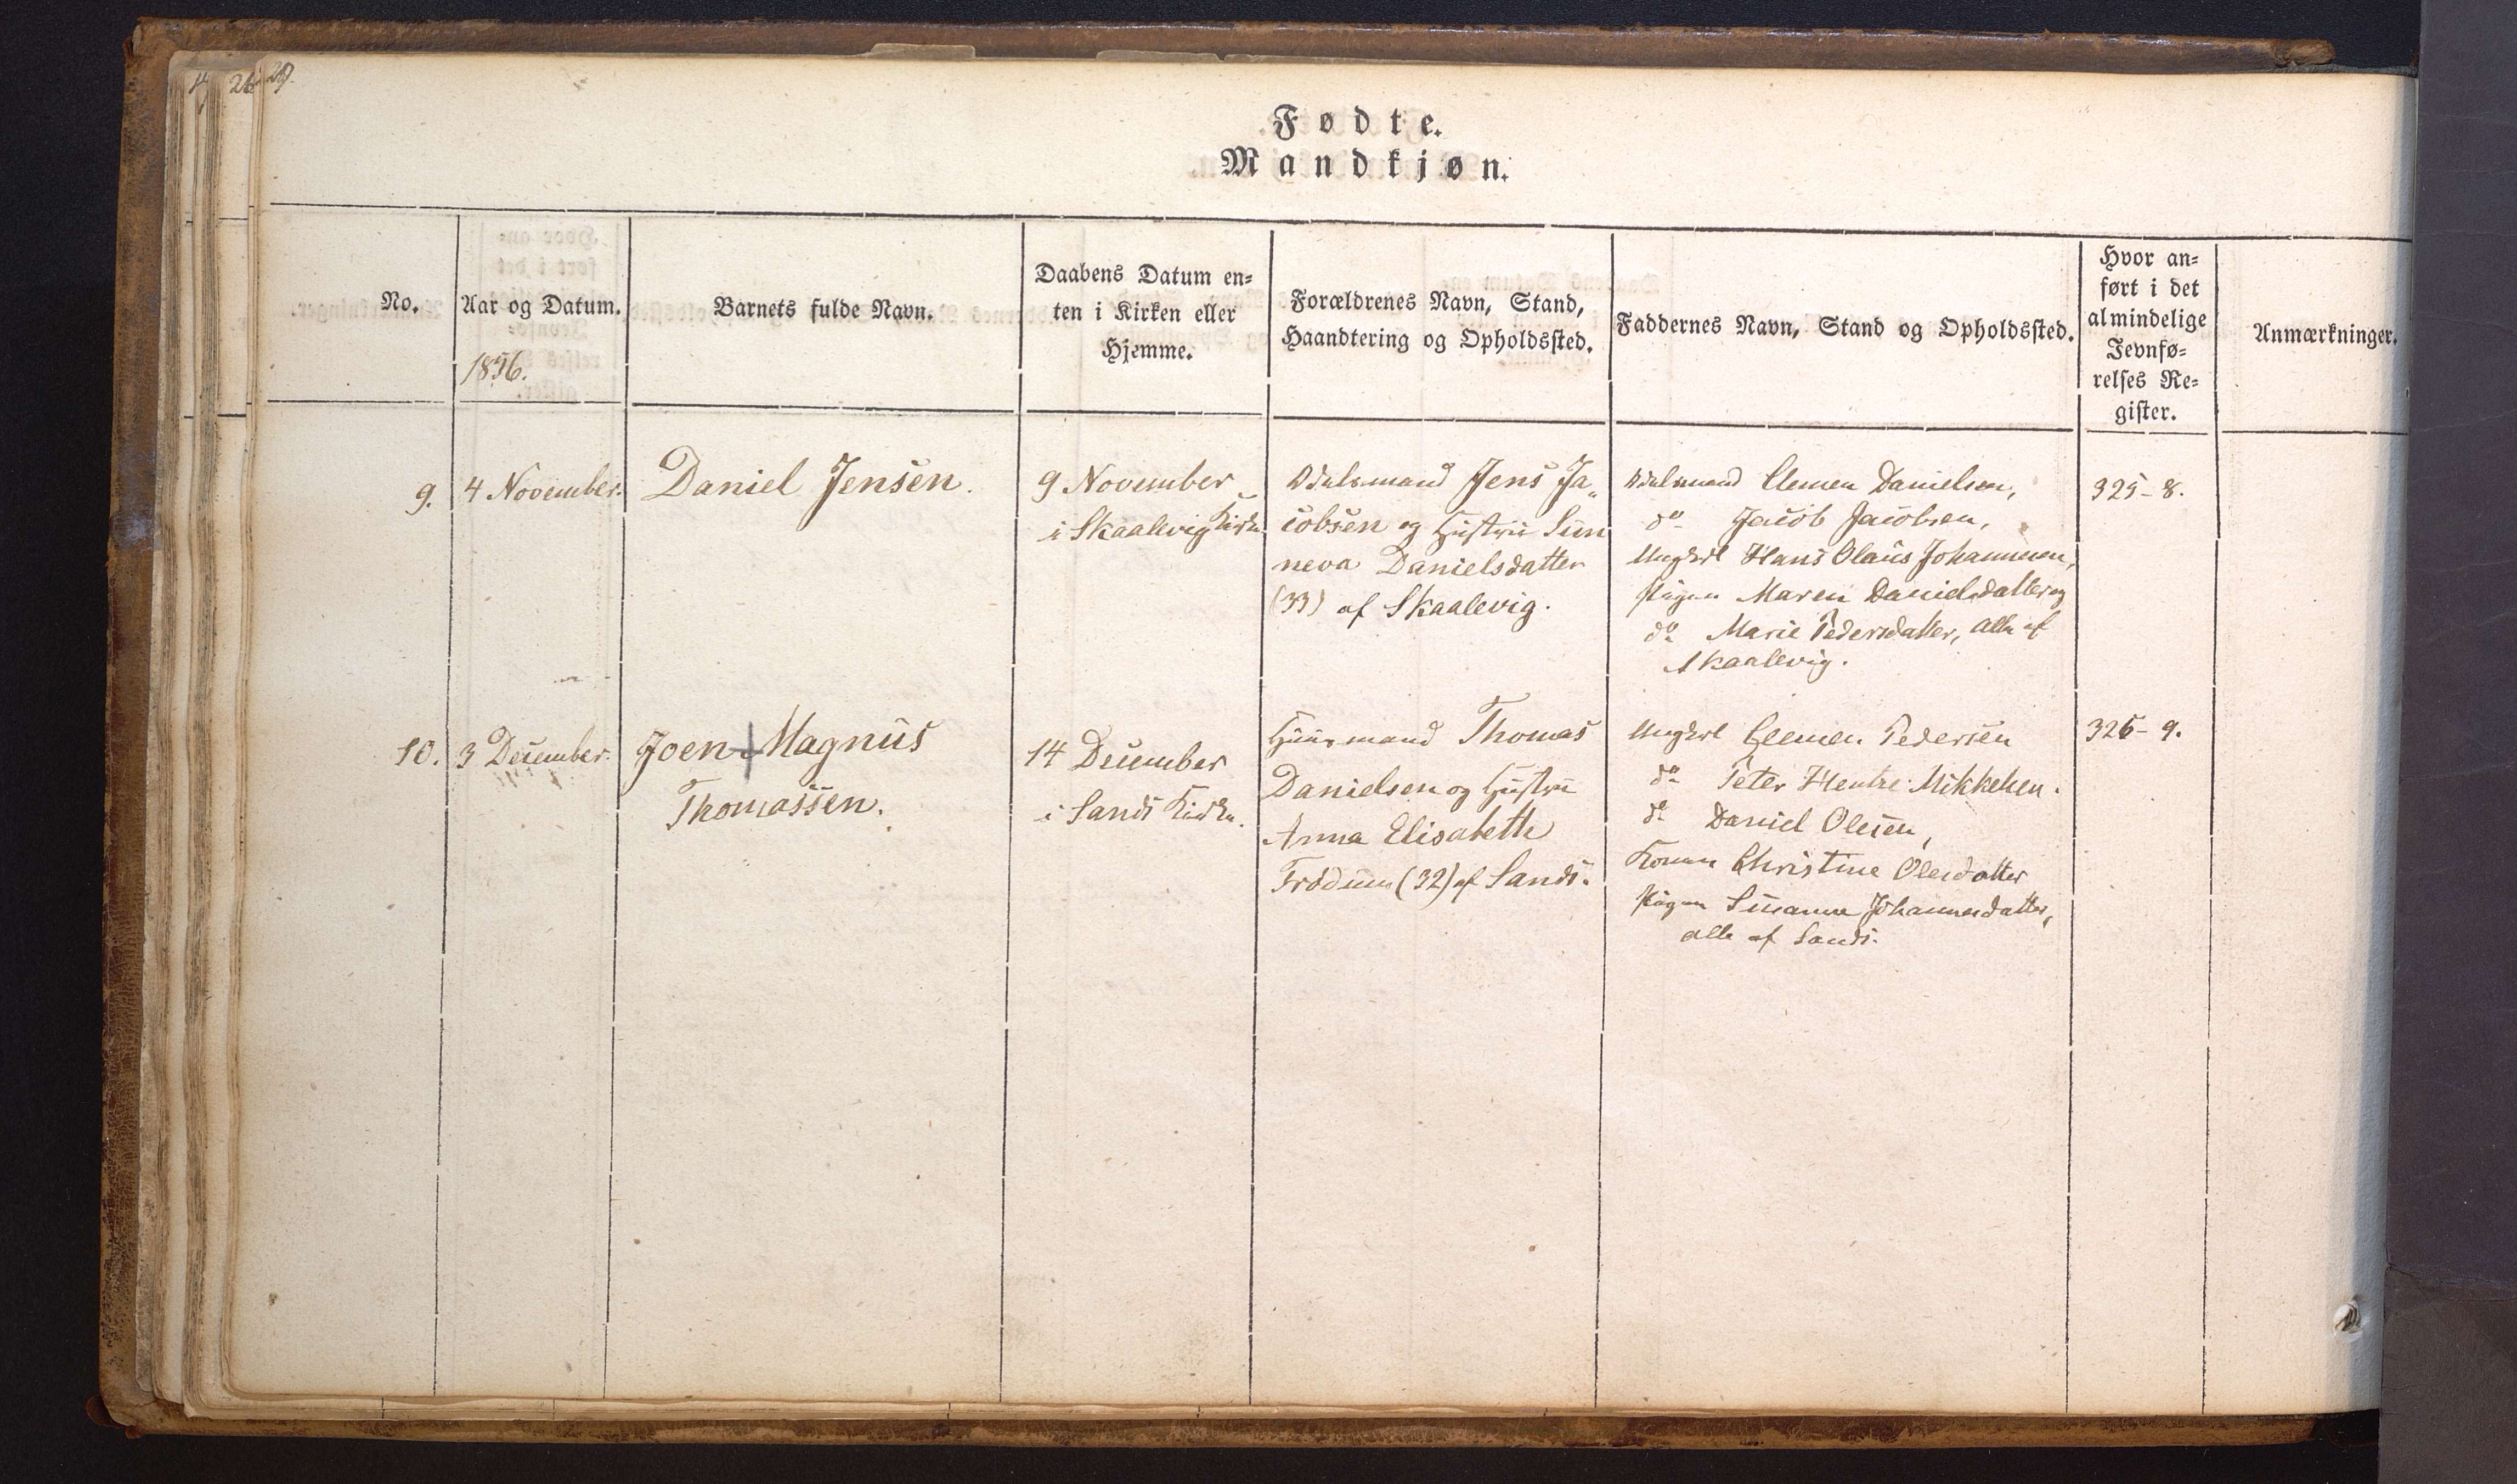 29.
26
Fødte.
Mandkjøn.
No.
Aar og Datum.
1856.
Barnets fulde Navn.
Daabens Datum en=
ten i Kirken eller
Hjemme.
Forældrenes Navn, Stand,
Haandtering og Opholdssted.
Faddernes Navn, Stand og Opholdssted.
Hvor an=
ført i det
almindelige
Jevnfø=
relses Re=
gister.
Anmærkninger.
9.
4 November.
Daniel Jensen.
9 November
i Skaalevig Kirke.
Odelsmand Jens Ja„
cobsen og Hustru Sun
neva Danielsdatter
(33) af Skaalevig.
Odelsmand Clemen Danielsen,
do Jacob Jacobsen,
Ungkarl Hans Olaus Johannesen,
Pigen Maren Danielsdatter og
do Marie Pedersdatter, alle af
Skaalevig.
325-8.
10.
3 December.
Joen Magnus
Thomassen.
14 December
i Sands Kirke.
Huusmand Thomas
Danielsen og Hustru
Anna Elisabeth
(32) af Sands.
Ungkarl Clemen Pedersen
do Peter Mikkelsen.
do Daniel Olesen,
Konen Christine Olesdatter
Pigen Susanne Johannesdatter,
alle af Sands.
326-9.